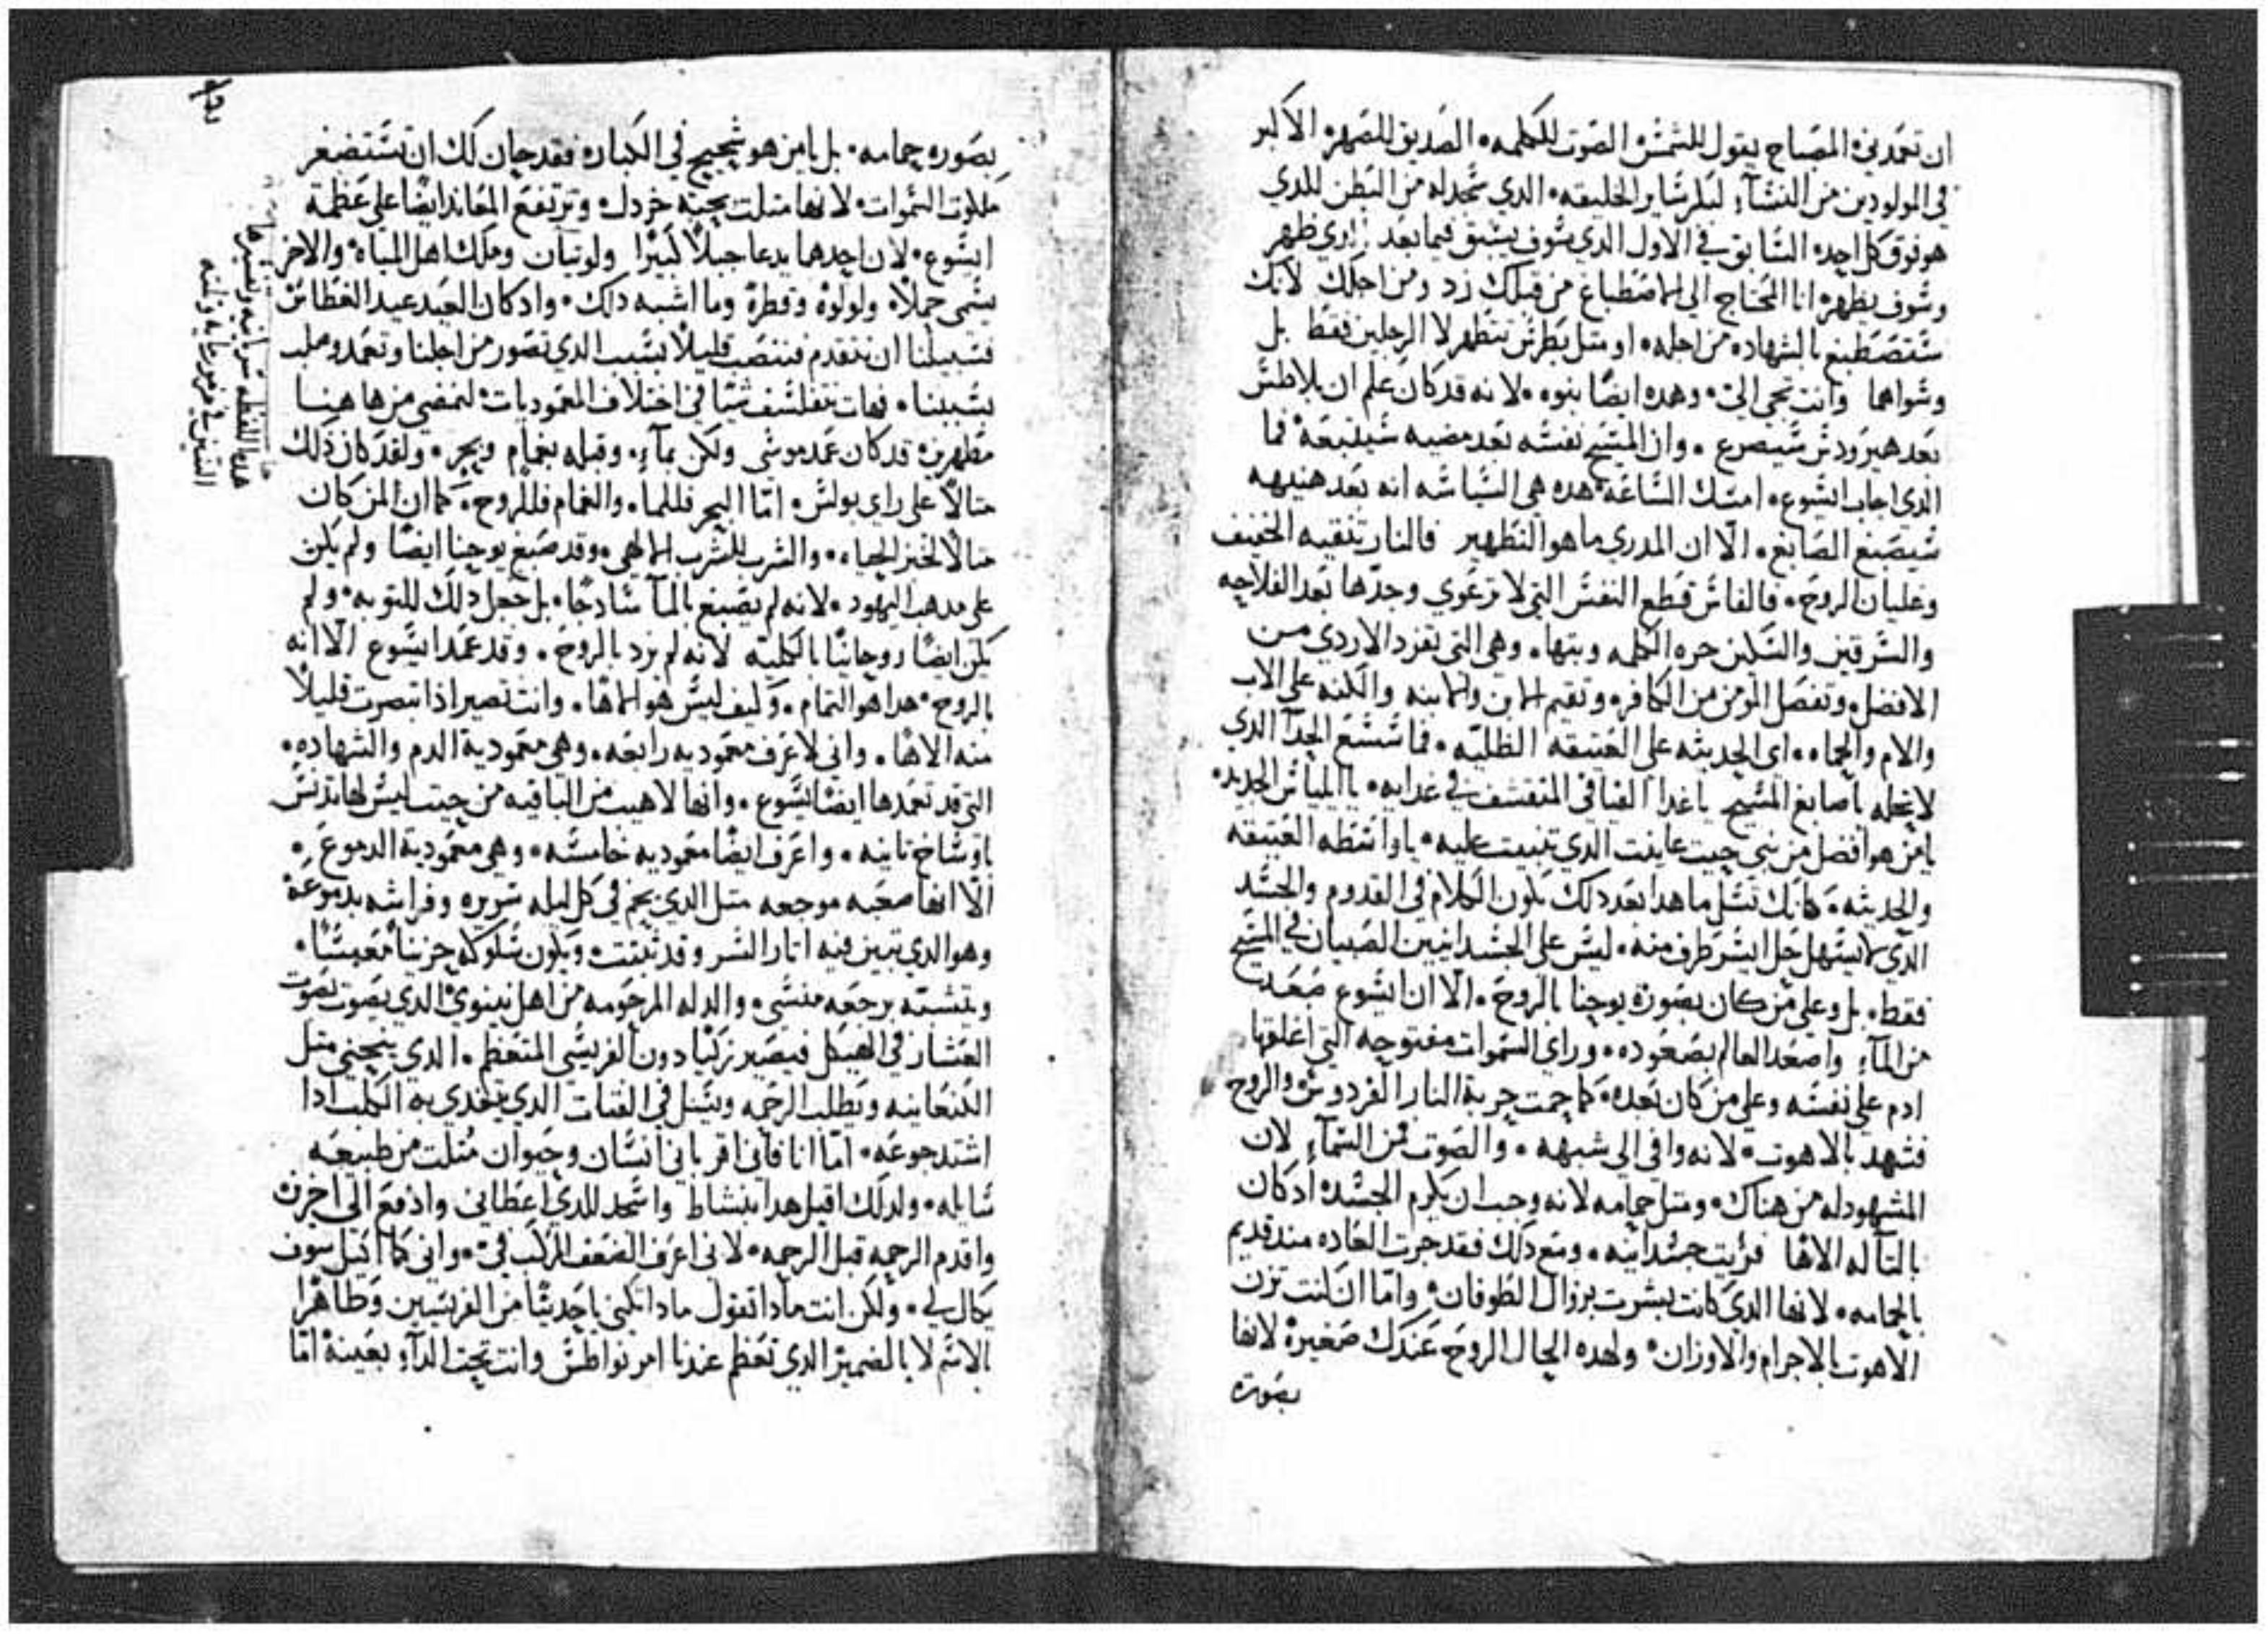 ان تعمدني المصباح يقول للشمس الصوت للكلمه الصديق للصهر الاكبر
في المولودين من النساء لبكر ساير الخليقه الدي سجد له من البطن للدي
هو فوق كل احد السابق في الاول الدي سوف يسبق فيما بعد زاوي ظهر
وسوف يظهر انا المحتاج الى الاصطباغ من قبلك زد ومن اجلك لانك
ستصطبغ بالشهاده من اجله او متل بطرس تتطهر لا الرجلين فقط بل
وسواهما وانت تجي الي وهده ايضا نبوه لانه قد كان علم ان بلاطس
بعد هيرودس سيصرع وان المسيح نفسه بعد مضيه سيلبعه فما
الدي اجاب ايسوع امسك الساعه هده هي السياسه انه بعد هنيهه
سيصبغ الصابغ الا ان المدري ما هو التطهير فالنار تنقيه الخفيف
وغليان الروح فالفاس قطع النفس التي لا ترعوي وجدها بعد الفلاحه
والسرقين والسكين حره الكلمه وبتها وهي التي تفرد الاردي من
الافضل وتفصل المومن من الكافر وتقيم الابن والابنه والكنه على الاب
والام والحماه اي الحديثه على العتيقه الظليه فما شسع الحدا الدي
لا تحله يا صابغ المسيح يا غدا الفيافي المتقشف في غدايه يا الياس الجديد
يا من هو افضل من نبي حيت عاينت الدي تنبيت عليه يا واسطه العتيقه
والحديثه كانك تسل ما هدا بعد دلك يكون الكلام في القدوم والجسد
الدي لا يستهل حل ايسر طرف منه ليس على الجسدانيين الصبيان في المسيح
فقط بل وعلى من كان بصورة يوحنا بالروح الا ان ايسوع صعد
من الماء واصعد العالم بصعوده وراى السموات مفتوحه التي اغلقها
ادم على نفسه وعلى من كان بعده كما حمت حربة النار الفردوس والروح
فشهد بالاهوت لانه وافى الى شبهه والصوت من السماء لان
المشهود له من هناك ومتل حمامه لانه وجب ان يكرم الجسد اد كان
بالتاله الاها فريت جسدانيه ومع دلك فقد جرت العاده مند قديم
بالحمامه لانها الدي كانت بشرت بزوال الطوفان واما ان كنت تزن
الاهوت بالاجرام والاوزان ولهده الحال الروح عندك صغيرة لانها
بصورة
بصوره حمامه بل يا من هو شحيح في الكباره فقد حان لك ان تستضغر
ملكوت السموات لانها متلت بحبة خردل وترتفع المعاند ايضا على عظمة
ايسوع لان احدهما يدعا جبلا كبيرا ولوتيان وملك اهل المياه والاخر
يسمى حملا ولولوة وقطرة وما اشبه دلك واد كان العيد عيد الغطاس
فسبيلنا ان نتقدم فننصب قليلا بسبب الدي تصور من اجلنا وتعمد وصلب
بسببنا فهات نتفلسف شيا في اختلاف المعموديات لنمضي من هاهنا
مطهرين قد كان عمد موسى ولكن بماء وقبله بغمام وبحر ولقد كان دلك
متالا على راي بولس اما البحر فللما والغمام فللروح كما ان المن كان
متالا لخبز الحياه والشرب للشرب الالهي وقد صبغ يوحنا ايضا ولم يكن
على مدهب اليهود لانه لم يصبغ بالما سادجا بل جعل دلك للتوبه ولم
يكن ايضا روحانيا بالكليه لانه لم يزد بالروح وقد عمد ايسوع الا انه
بالروح هدا هو التمام وكيف ليس هو الاها وانت تصير ادا تبصرت قليلا
منه الاها واني لاعرف معموديه رابعه وهي معمودية الدم والشهاده
التي قد تعمدها ايضا ايسوع وانها لاهيب من الباقيه من حيت ليس لها تدنس
باوساخ تانيه واعرف ايضا معموديه خامسه وهي معمودية الدموع
الا انها صعبه موجعه متل الدي يحم في كل ليله سريره وفراشه بدموعه
وهو الدي تبين فيه اتار الشر وقد نتنت ويكون سلوكه حزينا معبسا
وتشبه برجعه منسى والدله المرحومه من اهل نينوى الدي يصوت بصوت
العشار في الهيكل فيصير زكيا دون الفريسي المتعظم الدي ينحني متل
الكنعانيه ويطلب الرحمه ويسل في الفتات الدي يتغدى به الكلب ادا
اشتد جوعه اما انا فاني اقر باني انسان وحيوان متلت من طبيعه
سايله ولدلك اقبل هدا بنشاط واسجد للدي اعطاني وادفع الى اخرين
واقدم الرحمه قبل الرحمه لاني اعرف الضعف المركب في واني كما اكيل سوف
يكال لي ولكن انت مادا تقول مادا تكني يا حديثا من الفريسيين وطاهرا
بالاسم لا بالضمير الدي تعظم عندنا امر نواطس وانت تحت الداء بعينه اما
هده اللفظه سريانيه وتفسيرها
التنين في مزمور